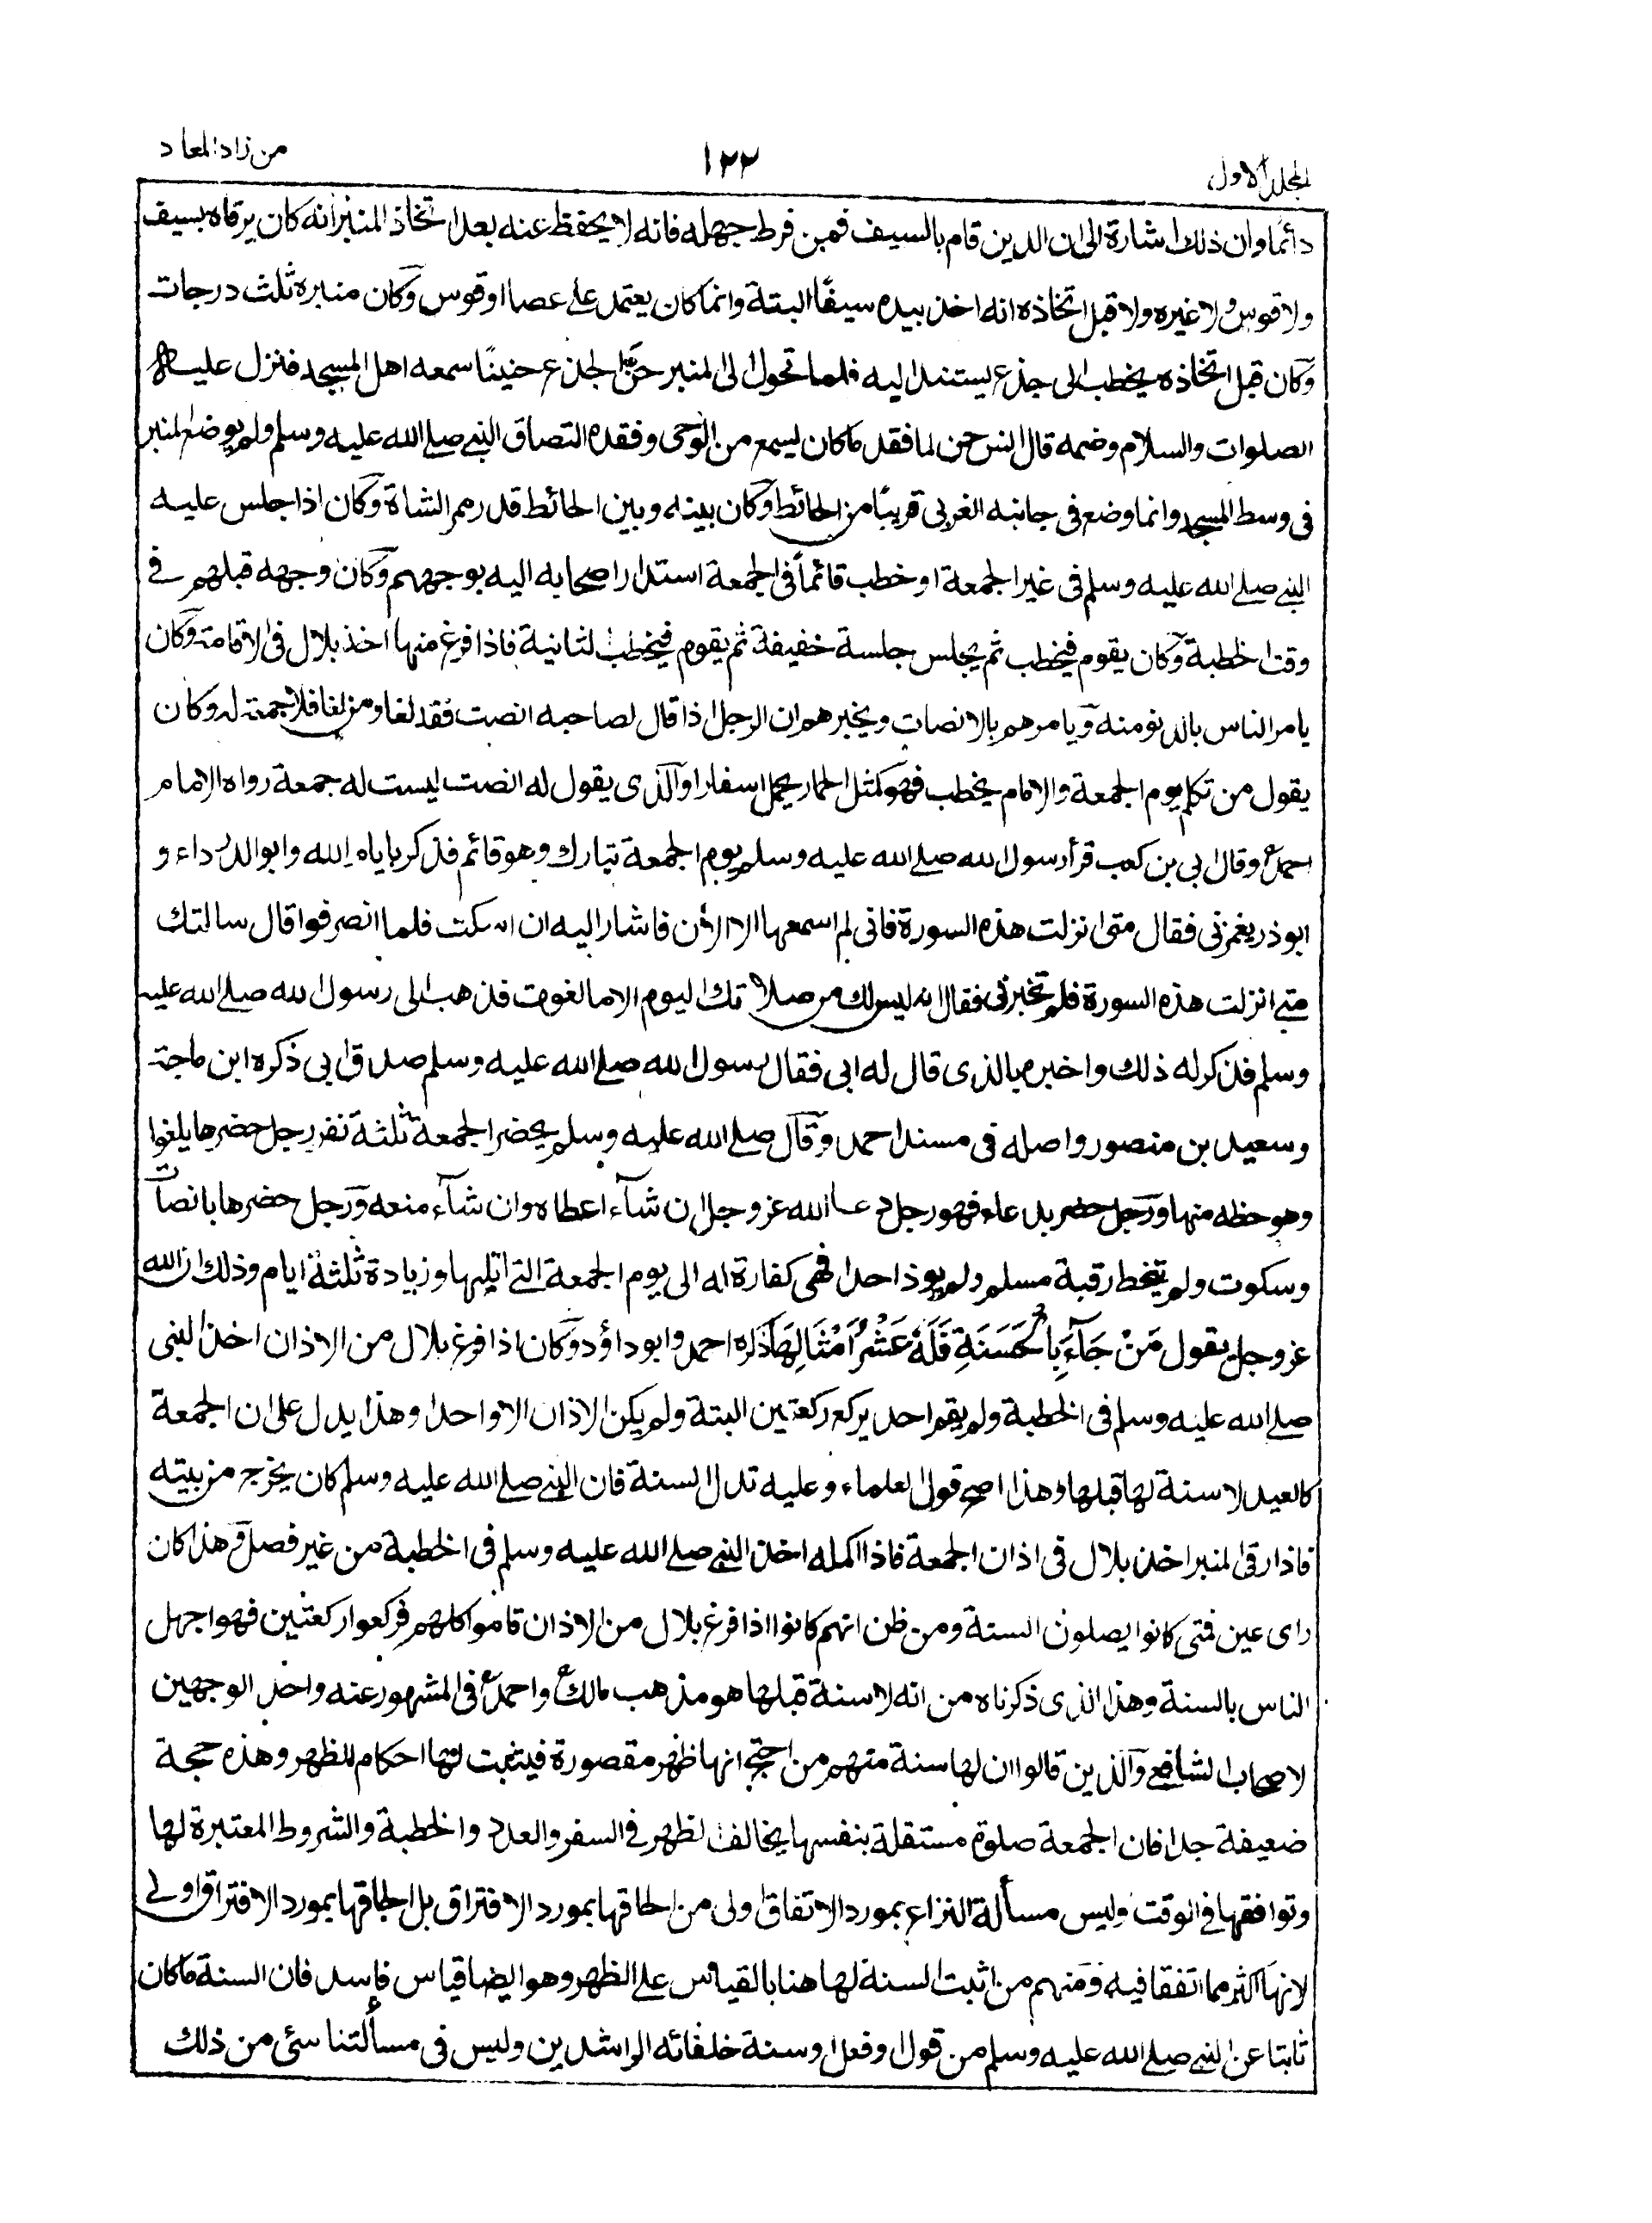 المجلد الاول
١٢٢
من زاد المعاد
دائما وان ذلك اشارة الى ان الدين قام بالسيف فمن فرط جهله فانه لا يحفظ عنه بعد اتخاذ المنبر انه كان يرقاه بسيف
ولا قوس ولا غيره ولا قبل اتخاذه انه اخذ بيده سيفًا البتة وانما كان يعتمد على عصا او قوس وكان منبره ثلث درجات
وكان قبل اتخاذه يخطب الى جذع يستند اليه فلما تحول الى المنبر حنَّ الجذع حنينًا سمعه اهل المسجد فنزل عليه
الصلوات والسلام وضمه قال انس حن لما فقد ما كان يسمع من الوحى وفقده التصاق النبى صلى الله عليه وسلم ولم يوضع المنبر
فى وسط المسجد وانما وضع فى جانبه الغربى قريبًا من الحائط وكان بينه وبين الحائط قدر ممر الشاة وكان اذا جلس عليه
النبى صلى الله عليه وسلم فى غير الجمعة او خطب قائمًا فى الجمعة استدار اصحابه اليه بوجههم وكان وجهه قبلهم فى
وقت الخطبة وكان يقوم فيخطب ثم يجلس جلسة خفيفة ثم يقوم فيخطب الثانية فاذا فرغ منها اخذ بلال فى الاقامة وكان
يامر الناس بالدنو منه ويامرهم بالانصات ويخبرهم ان الرجل اذا قال لصاحبه انصت فقد لغا ومن لغا فلا جمعة له وكان
يقول من تكلم يوم الجمعة والامام يخطب فهو كمثل الحمار يحمل اسفارا والذى يقول له انصت ليست له جمعة رواه الامام
احمد وقال ابى بن كعب قرأ رسول الله صلى الله عليه وسلم يوم الجمعة تبارك وهو قائم فذكر بايام الله وابو الدرداء و
ابو ذر يغمزنى فقال متى انزلت هذه السورة فانى لم اسمعها الا الأن فاشار اليه ان اسكت فلما انصرفوا قال سالتك
متى انزلت هذه السورة فلم تخبرنى فقال انه ليس لك من صلاتك اليوم الا ما لغوت فذهب الى رسول الله صلى الله عليه
وسلم فذكر له ذلك واخبره بالذى قال له ابى فقال رسول الله صلى الله عليه وسلم صدق ابى ذكره ابن ماجة
وسعيد بن منصور واصله فى مسند احمد وقال صلى الله عليه وسلم يحضر الجمعة ثلثة نفر رجل حضرها يلغوا
وهو حظه منها ورجل حضر بدعاء فهو رجل دعا الله عز وجل ان شآء اعطاه وان شآء منعه ورجل حضرها بانصات
وسكوت ولم يتخط رقبة مسلم ولم يوذ احدا فهى كفارة له الى يوم الجمعة التى تليها وزيادة ثلثة ايام وذلك ان الله
عز وجل يقول مَنْ جَآءَ بِالْحَسَنَةِ فَلَهٗ عَشْرُ اَمْثَالِهَا ذكره احمد وابو داؤد وكان اذا فرغ بلال من الاذان اخذ النبى
صلى الله عليه وسلم فى الخطبة ولم يقم احد يركع ركعتين البتة ولم يكن الاذان الا واحدا وهذا يدل على ان الجمعة
كالعيد لا سنة لها قبلها وهذا اصح قول العلماء وعليه تدل السنة فان النبى صلى الله عليه وسلم كان يخرج من بيته
فاذا رقى المنبر اخذ بلال فى اذان الجمعة فاذا اكمله اخذ النبى صلى الله عليه وسلم فى الخطبة من غير فصل وهذا كان
راى عين فمتى كانوا يصلون السنة ومن ظن انهم كانوا اذا فرغ بلال من الاذان قاموا كلهم فركعوا ركعتين فهو اجهل
الناس بالسنة وهذا الذى ذكرناه من انه لا سنة قبلها هو مذهب مالك واحمد فى المشهور عنه واحد الوجهين
لاصحاب الشافعى والذين قالوا ان لها سنة منهم من احتج انها ظهر مقصورة فيثبت لها احكام الظهر وهذه حجة
ضعيفة جدا فان الجمعة صلوة مستقلة بنفسها يخالف الظهر فى السفر والعدد والخطبة والشروط المعتبرة لها
وتوافقها فى الوقت وليس مسألة النزاع بمورد الاتفاق اولى من الحاقها بمورد الافتراق بل الحاقها بمورد الافتراق اولى
لانها اكثر مما اتفقا فيه ومنهم من اثبت السنة لها هنا بالقياس على الظهر وهو ايضا قياس فاسد فان السنة ما كان
ثابتا عن النبى صلى الله عليه وسلم من قول او فعل او سنة خلفائه الراشدين وليس فى مسألتنا شئى من ذلك